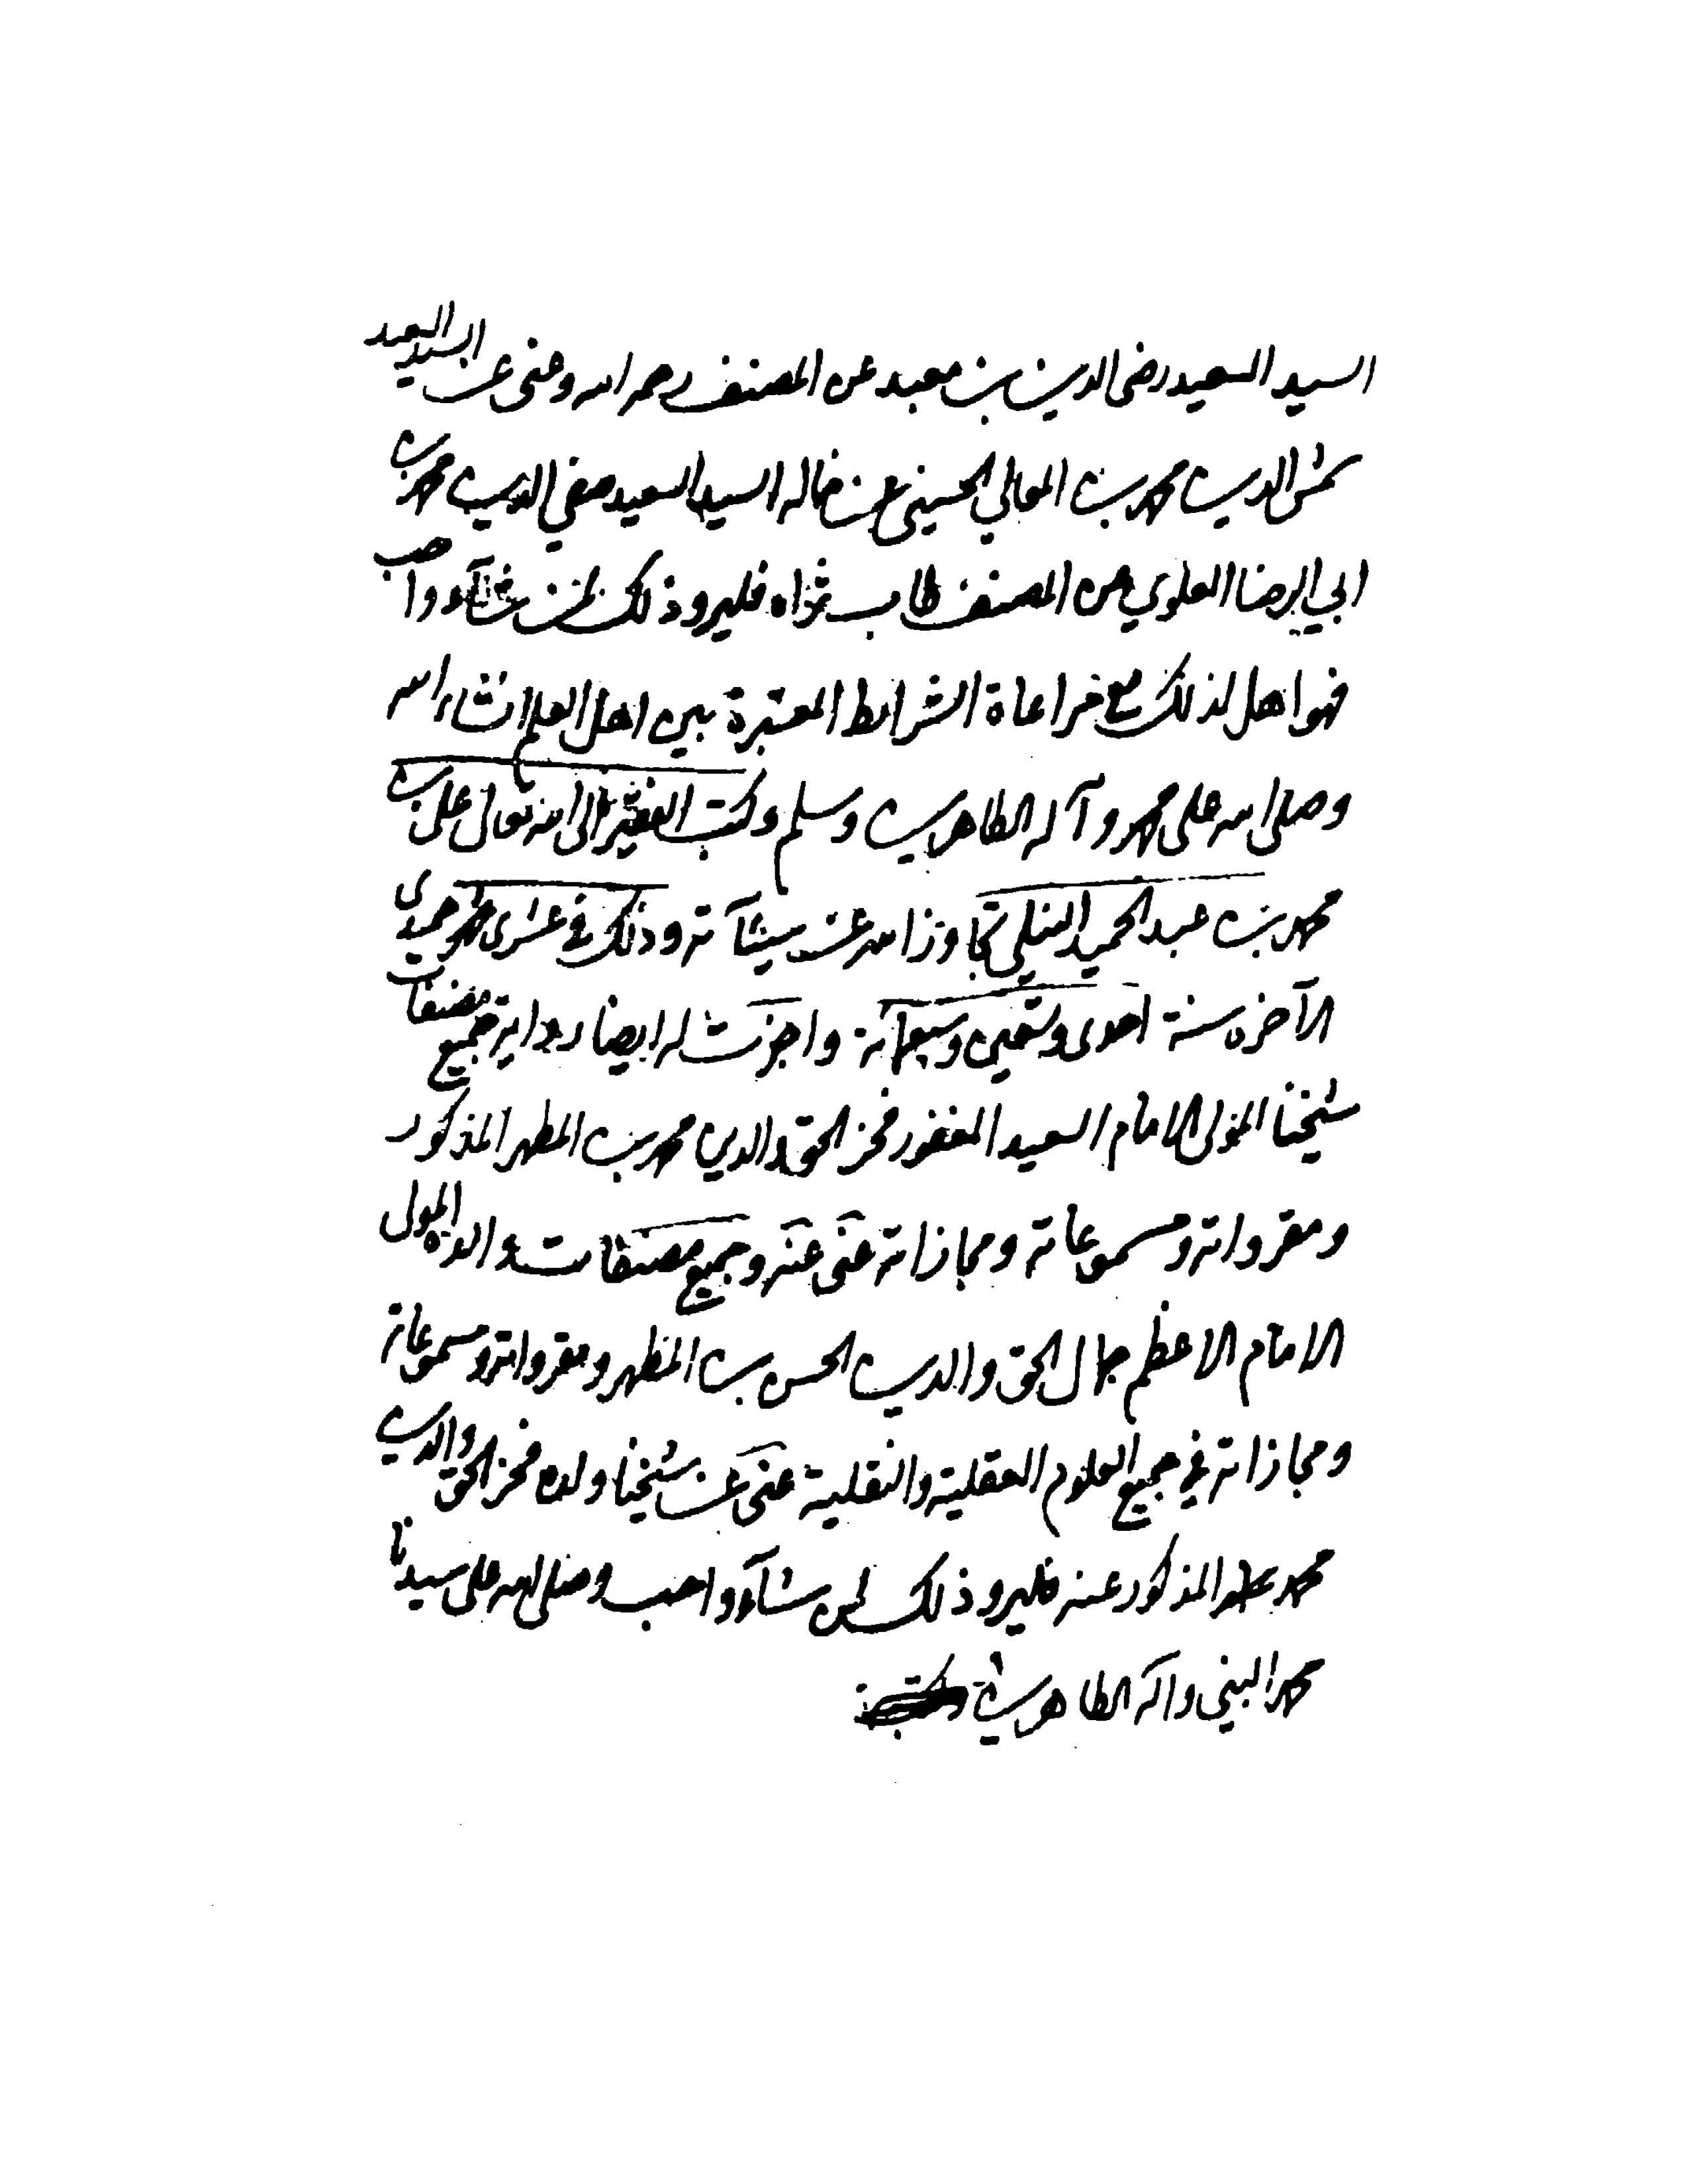 السيد السعيد رضى الدين بن معبد عن المصنف رحمه الله وعنى عن السيد السعيد
شمس الدين محمد بن المعالي الحسيني عن خاله السيد السعيد صفي الدين محمد بن
ابي الرضا العلوي عن المصنف طاب ثراه فليرو ذلك لمن شآء واحب
فهو اهل لذلك مع مراعاة الشرايط المعتبرة بين اهل العلم انشاء الله
وصلى الله على محمد وآله الطاهرين وسلم وكتب الفقير الى الله تعالى على بن
محمد بن عبد الحميد النيلي تجاوز الله عن سيئآته وذلك في عشرى جمدى
الآخره سنة احدى وتسعين وسبعمآئة واجزت له ايضا رواية جميع مصنفات
شيخنا المولى الامام السعيد المغفور فخر الحق والدين محمد بن المطهر المذكور
ومقرواته ومسموعاته ومجازاته عنى عنه وجميع مصنفات والده المولى
الامام الاعظم جمال الحق والدين الحسن بن المطهر ومقرواته ومسموعاته
ومجازاته في جميع العلوم العقلية والنقلية عنى عن شيخنا ولده فخر الحق والدين
محمد المذكور عنه فليرو ذلك لمن شآء واحب وصلى الله على سيدنا
محمد النبي وآله الطاهرين